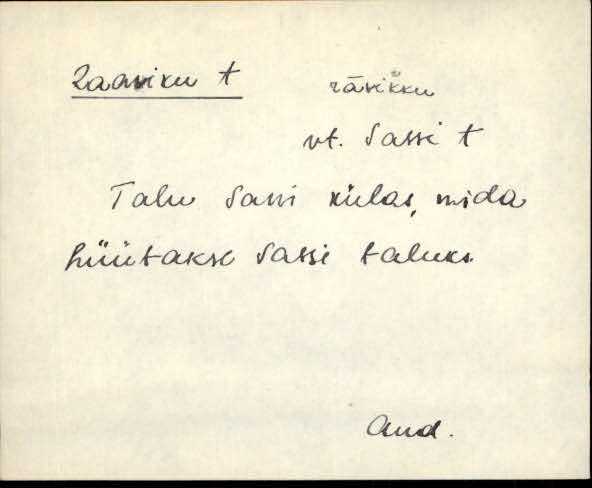 Raaviku t rāvikku
vt. Sassi t
Talu Sassi külas, mida
hüütakse Sassi taluks.
Aud.